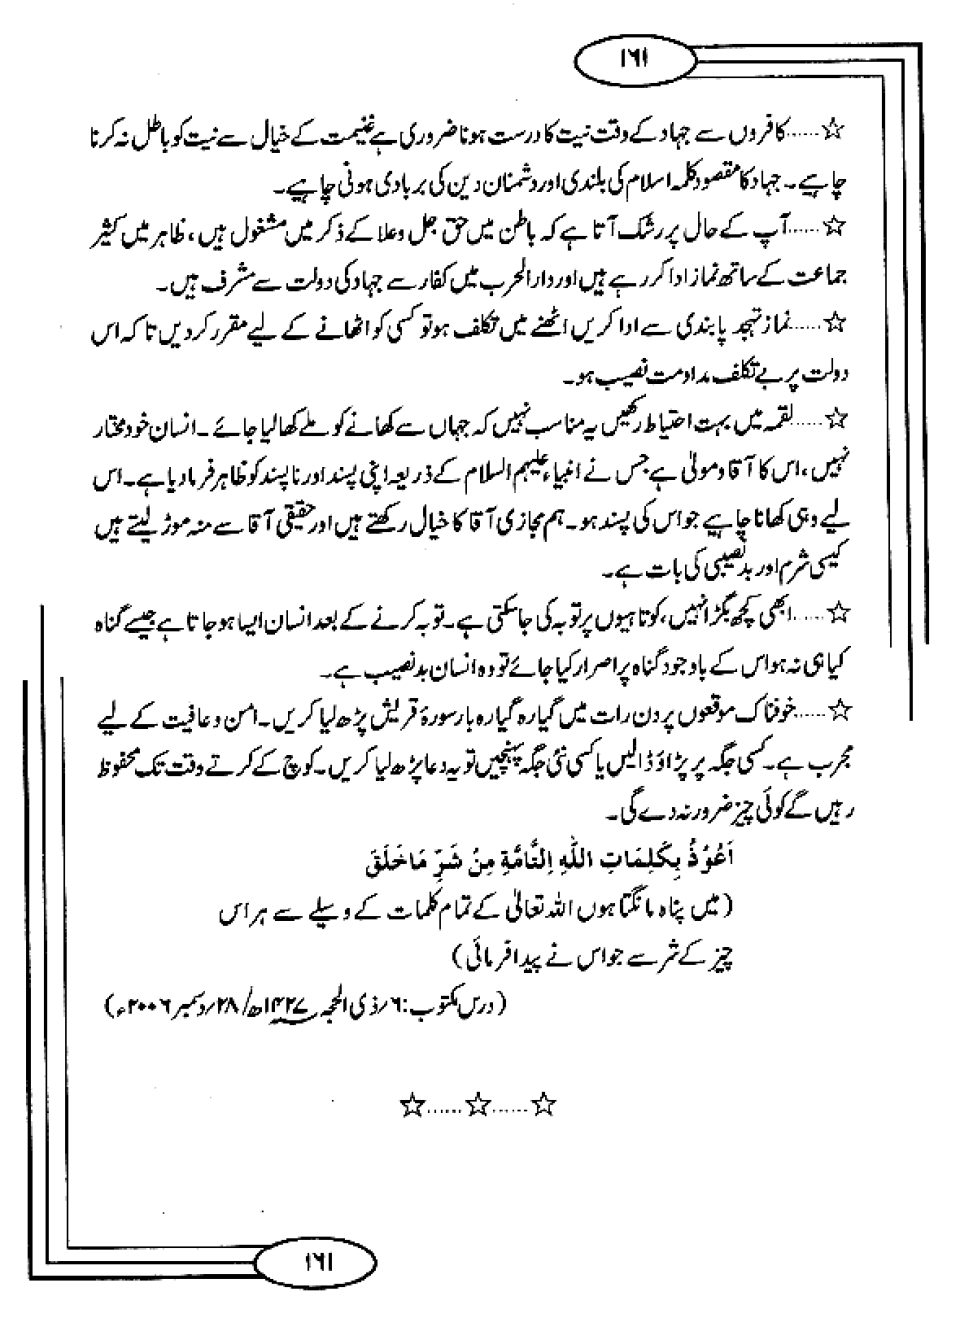 ۱۶۱
☆......کافروں سے جہاد کے وقت نیت کا درست ہونا ضروری ہے غنیمت کے خیال سے نیت کو باطل نہ کرنا
چاہیے۔ جہاد کا مقصود کلمہ اسلام کی بلندی اور دشمنان دین کی بربادی ہونی چاہیے۔
☆......آپ کے حال پر رشک آتا ہے کہ باطن میں حق جل وعلا کے ذکر میں مشغول ہیں، ظاہر میں کثیر
جماعت کے ساتھ نماز ادا کر رہے ہیں اور دار الحرب میں کفار سے جہاد کی دولت سے مشرف ہیں۔
☆......نماز تہجد پابندی سے ادا کریں اٹھنے میں تکلف ہو تو کسی کو اٹھانے کے لیے مقرر کر دیں تا کہ اس
دولت پر بے تکلف مداومت نصیب ہو۔
☆......لقمہ میں بہت احتیاط رکھیں یہ مناسب نہیں کہ جہاں سے کھانے کو ملے کھا لیا جائے۔ انسان خود مختار
نہیں، اس کا آقا و مولیٰ ہے جس نے انبیاء علیہم السلام کے ذریعہ اپنی پسند اور نا پسند کو ظاہر فرما دیا ہے۔ اس
لیے وہی کھانا چاہیے جو اس کی پسند ہو۔ ہم مجازی آقا کا خیال رکھتے ہیں اور حقیقی آقا سے منہ موڑ لیتے ہیں
کیسی شرم اور بدنصیبی کی بات ہے۔
☆......ابھی کچھ بگڑا نہیں، کوتاہیوں پر توبہ کی جاسکتی ہے۔ توبہ کرنے کے بعد انسان ایسا ہو جاتا ہے جیسے گناہ
کیا ہی نہ ہو اس کے باوجود گناہ پر اصرار کیا جائے تو وہ انسان بدنصیب ہے۔
☆......خوفناک موقعوں پر دن رات میں گیارہ گیارہ بار سورۂ قریش پڑھ لیا کریں۔ امن و عافیت کے لیے
مجرب ہے۔ کسی جگہ پر پڑاؤ ڈالیں یا کسی نئی جگہ پہنچیں تو یہ دعا پڑھ لیا کریں۔ کوچ کے کرتے وقت تک محفوظ
رہیں گے کوئی چیز ضرور نہ دے گی۔
اَعُوْذُ بِکَلِمَاتِ اللّٰہِ التَّامَّۃِ مِنْ شَرِّ مَا خَلَقَ
(میں پناہ مانگتا ہوں اللہ تعالیٰ کے تمام کلمات کے وسیلے سے ہر اس
چیز کے شر سے جو اس نے پیدا فرمائی)
(درس مکتوب: ۶؍ذی الحجہ ۱۴۲۷ھ/ ۲۸؍دسمبر ۲۰۰۶ء)
☆......☆......☆
۱۶۱